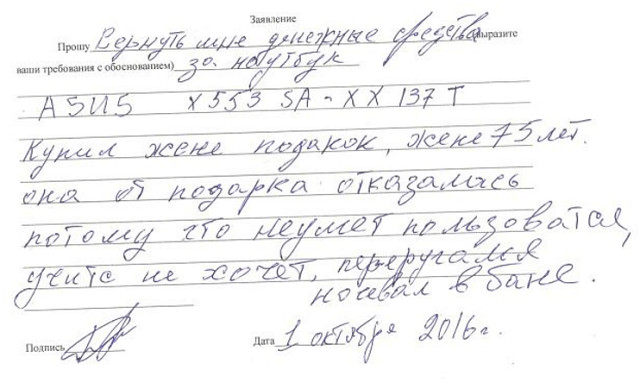 Заявление
Прошу Вернуть мне денежные средства (выразите
ваши требования с обоснованием) за ноутбук
ASUS X553 SA-XX 137T
Купил жене подакок, жене 75 лет.
она от подарка отказалась
потому что неумет пользоватся,
учитс не хочет, переругался
ночевал в бане.
Подпись
Дата 1 октября 2016 г.